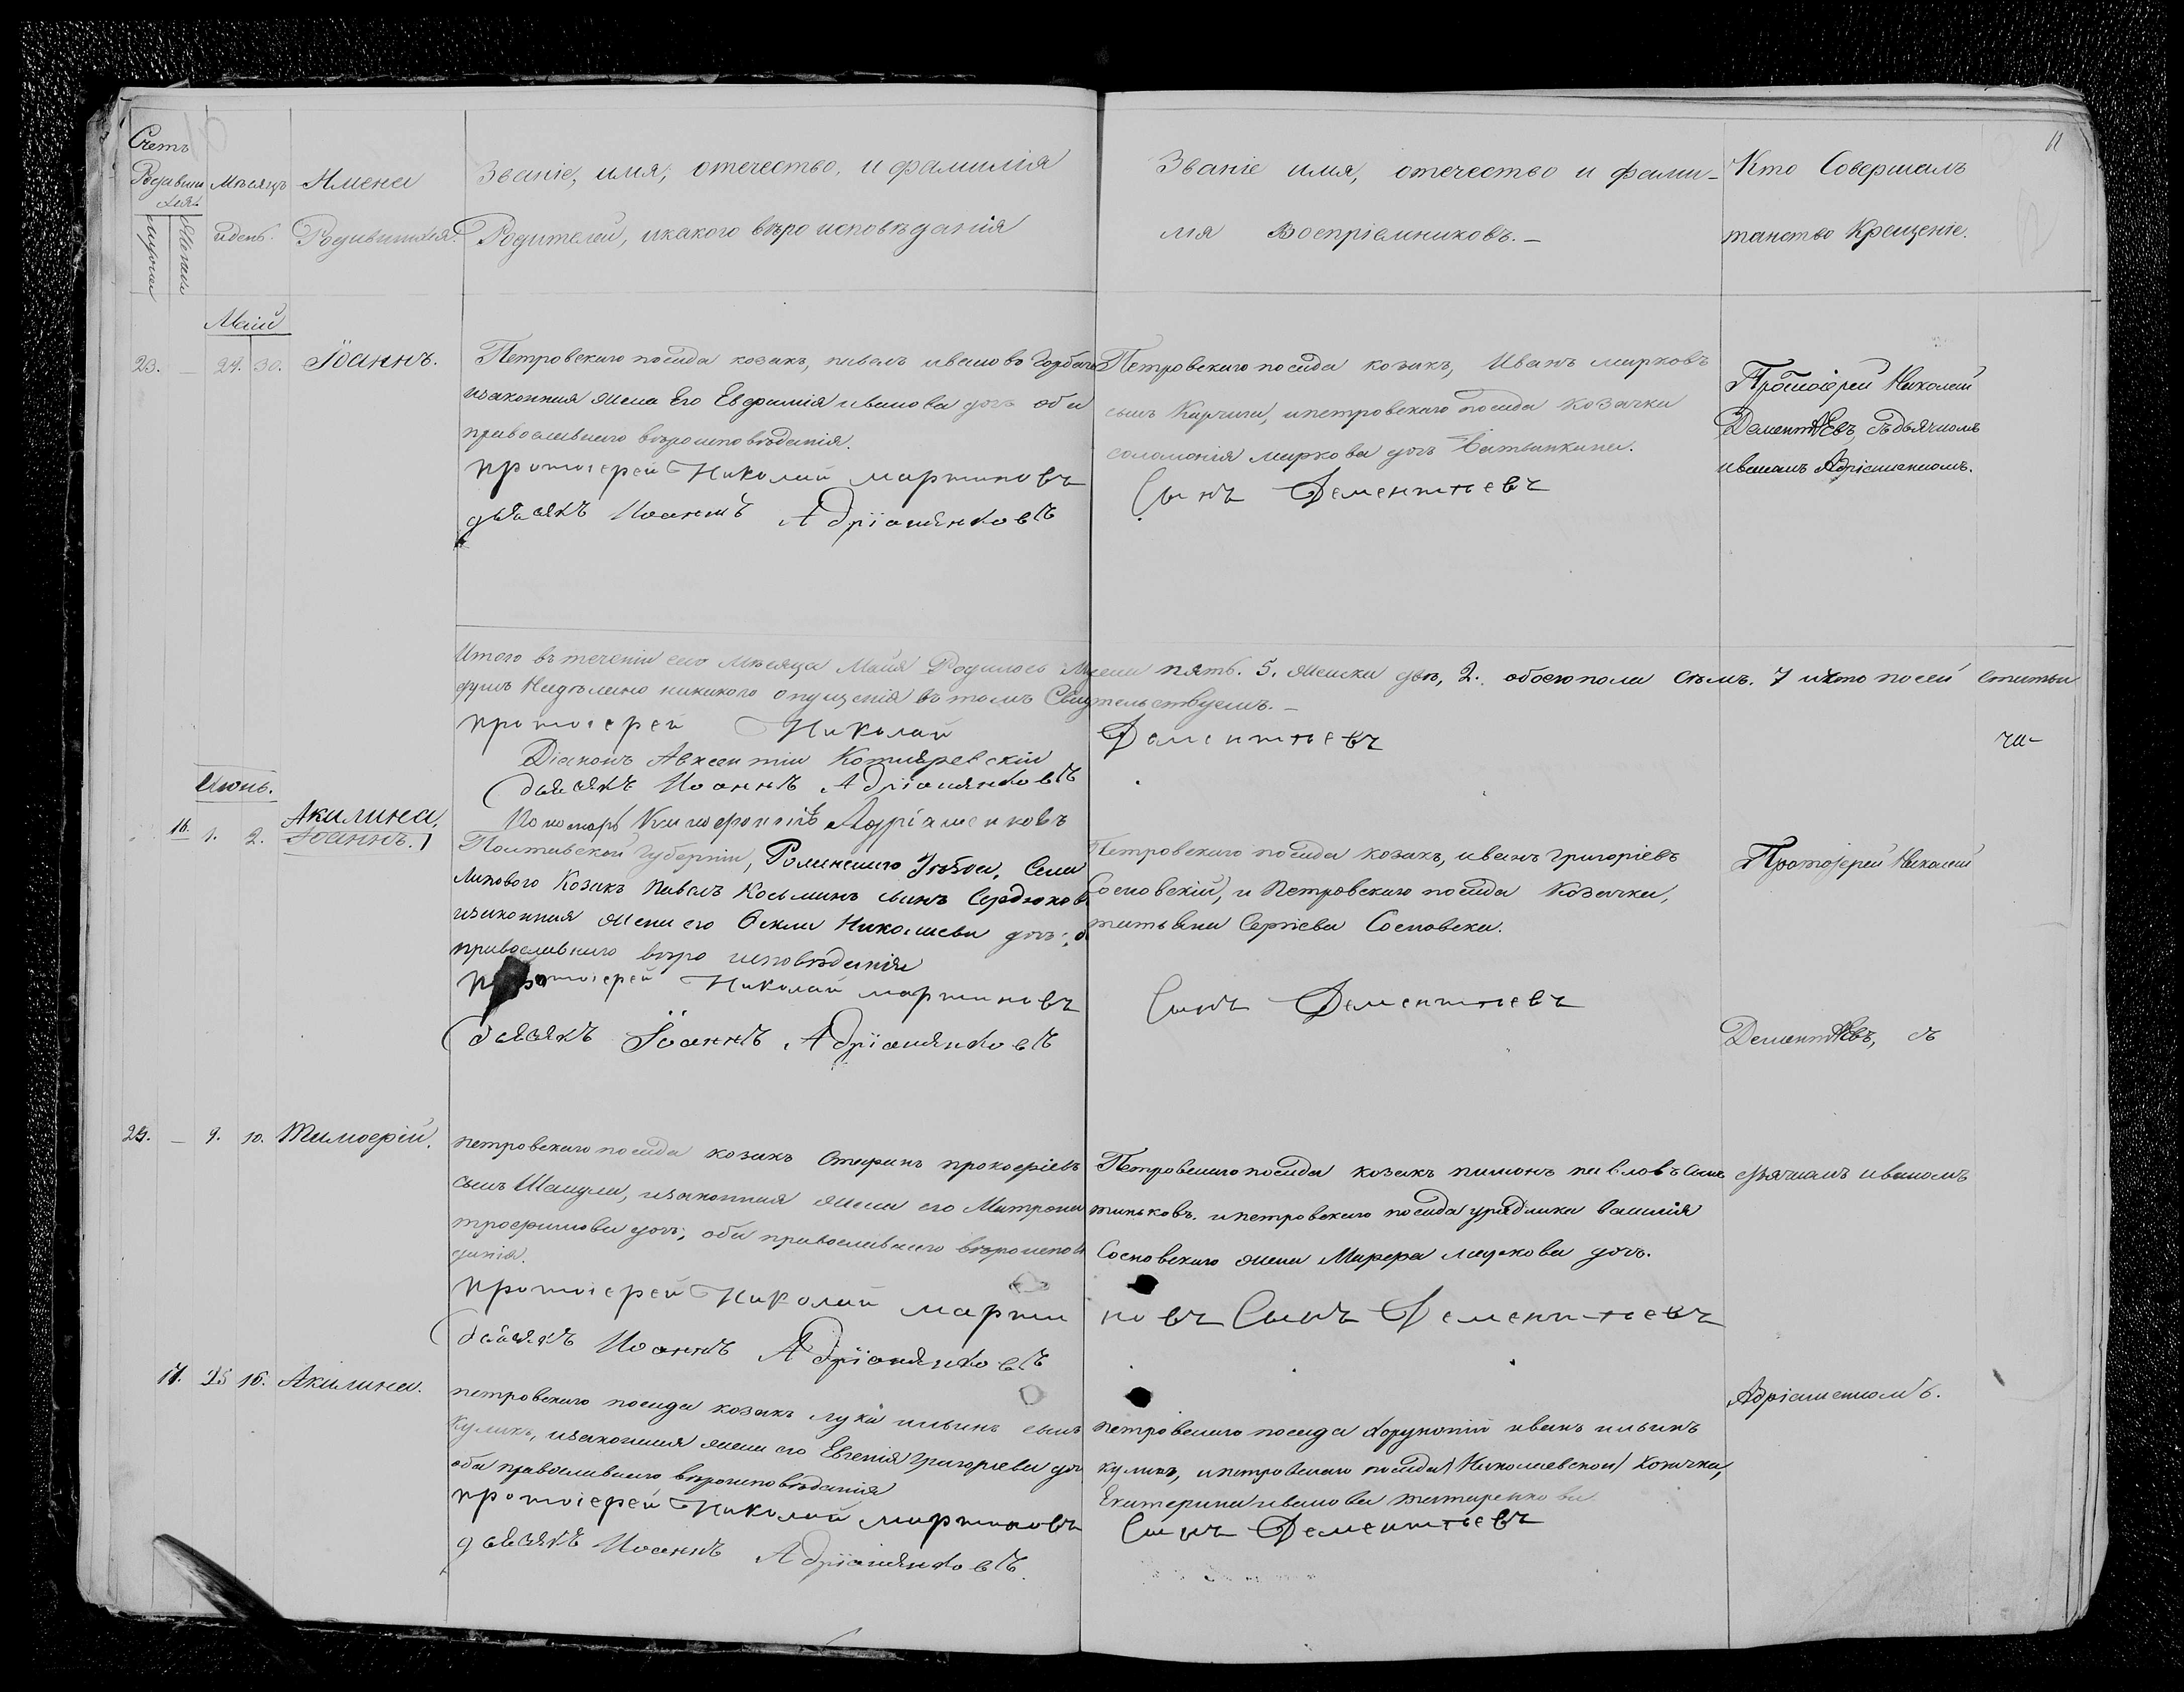 11
Счетъ
Родивши
хся.
Мѣсяцъ
и день.
Имена
Родившихся.
Званіе, имя, отечество, и фамилія
Родителей, и какого вѣро исповѣданія
Званіе имя, отечество и фами-
лія Воспріемниковъ.-
Кто Совершалъ
таинство Крещеніе.
Маій
23. - 29. 30. Іоаннъ.
Петровскаго посада козакъ, павелъ ивановъ
изаконная жена Его Евфимія иванова доч: оба
православнаго вѣроисповѣданія.
протоіерей Николай мартиновъ
дьячокъ Иоаннъ Адріаненковъ
Петровскаго посада козакъ, Иванъ марковъ
сынъ ипетровскаго посада козачка
соломонія маркова доч:
Сынъ Дементіевъ
Протоіерей Николай
Дементіевъ, съ дьячкомъ
иваномъ Адріаненкомъ.
Итого въ теченіи сего Мѣсяца Майя Родилось Мужеска пять. 5. женска двѣ, 2. обоего пола Семь. 7 и что по сей статьи
никакого опущенія въ томъ Свидѣтельствуемъ.-
протоіерей Николай Дементіевъ
Діаконъ Авксентій Котляревскій
дьячокъ Иоаннъ Адріаненковъ
Пономарь Ксенофонтъ Адріаненковъ
Июнь.
16. 1. 2. Акилина,
Іоаннъ.
Полтавской Губерніи, Роменскаго Уѣзда, Села
Липового Козакъ Павелъ Косьминъ сынъ Сердюковъ
изаконная жена его Фекла Николаева доч:
православнаго вѣро исповѣданія
протоіерей Николай мартиновъ
дьячокъ Іоаннъ Адріаненковъ
Петровскаго посада козакъ, иванъ григоріевъ
Сосновскій, и Петровскаго посада Козачка,
татьяна Сергіева Сосновска.
Сынъ Дементіевъ
Протоіерей Николай
Дементіевъ, съ
24. - 9. 10. Тимофей.
петровскаго посада козакъ Стефанъ прокофіевъ
сынъ изаконная жена его Матрона
трофимова доч:, оба православнаго вѣроисповѣ
данія.
протоіерей Николай марти
новъ Сынъ Дементіевъ
дьячокъ Иоаннъ Адріаненковъ
Петровскаго посада козакъ пименъ павловъ Сынъ
ипетровскаго посада урядника василія
Сосновскаго жена Марфа маркова доч.
дьячкомъ иваномъ
17. 15 16. Акилина.
петровскаго посада козакъ лука ильинъ сынъ
Куликъ, изаконная жена его Евгенія григорієва доч
оба православнаго вѣроисповѣданія
протоіерей Николай мартиновъ
дьячокъ Иоаннъ Адріаненковъ
петровскаго посада хорунжій иванъ ильинъ
куликъ, ипетровскаго посада Николаевской козачка,
Екатерина иванова татаренкова
Сынъ Дементіевъ
Адріаненкомъ.